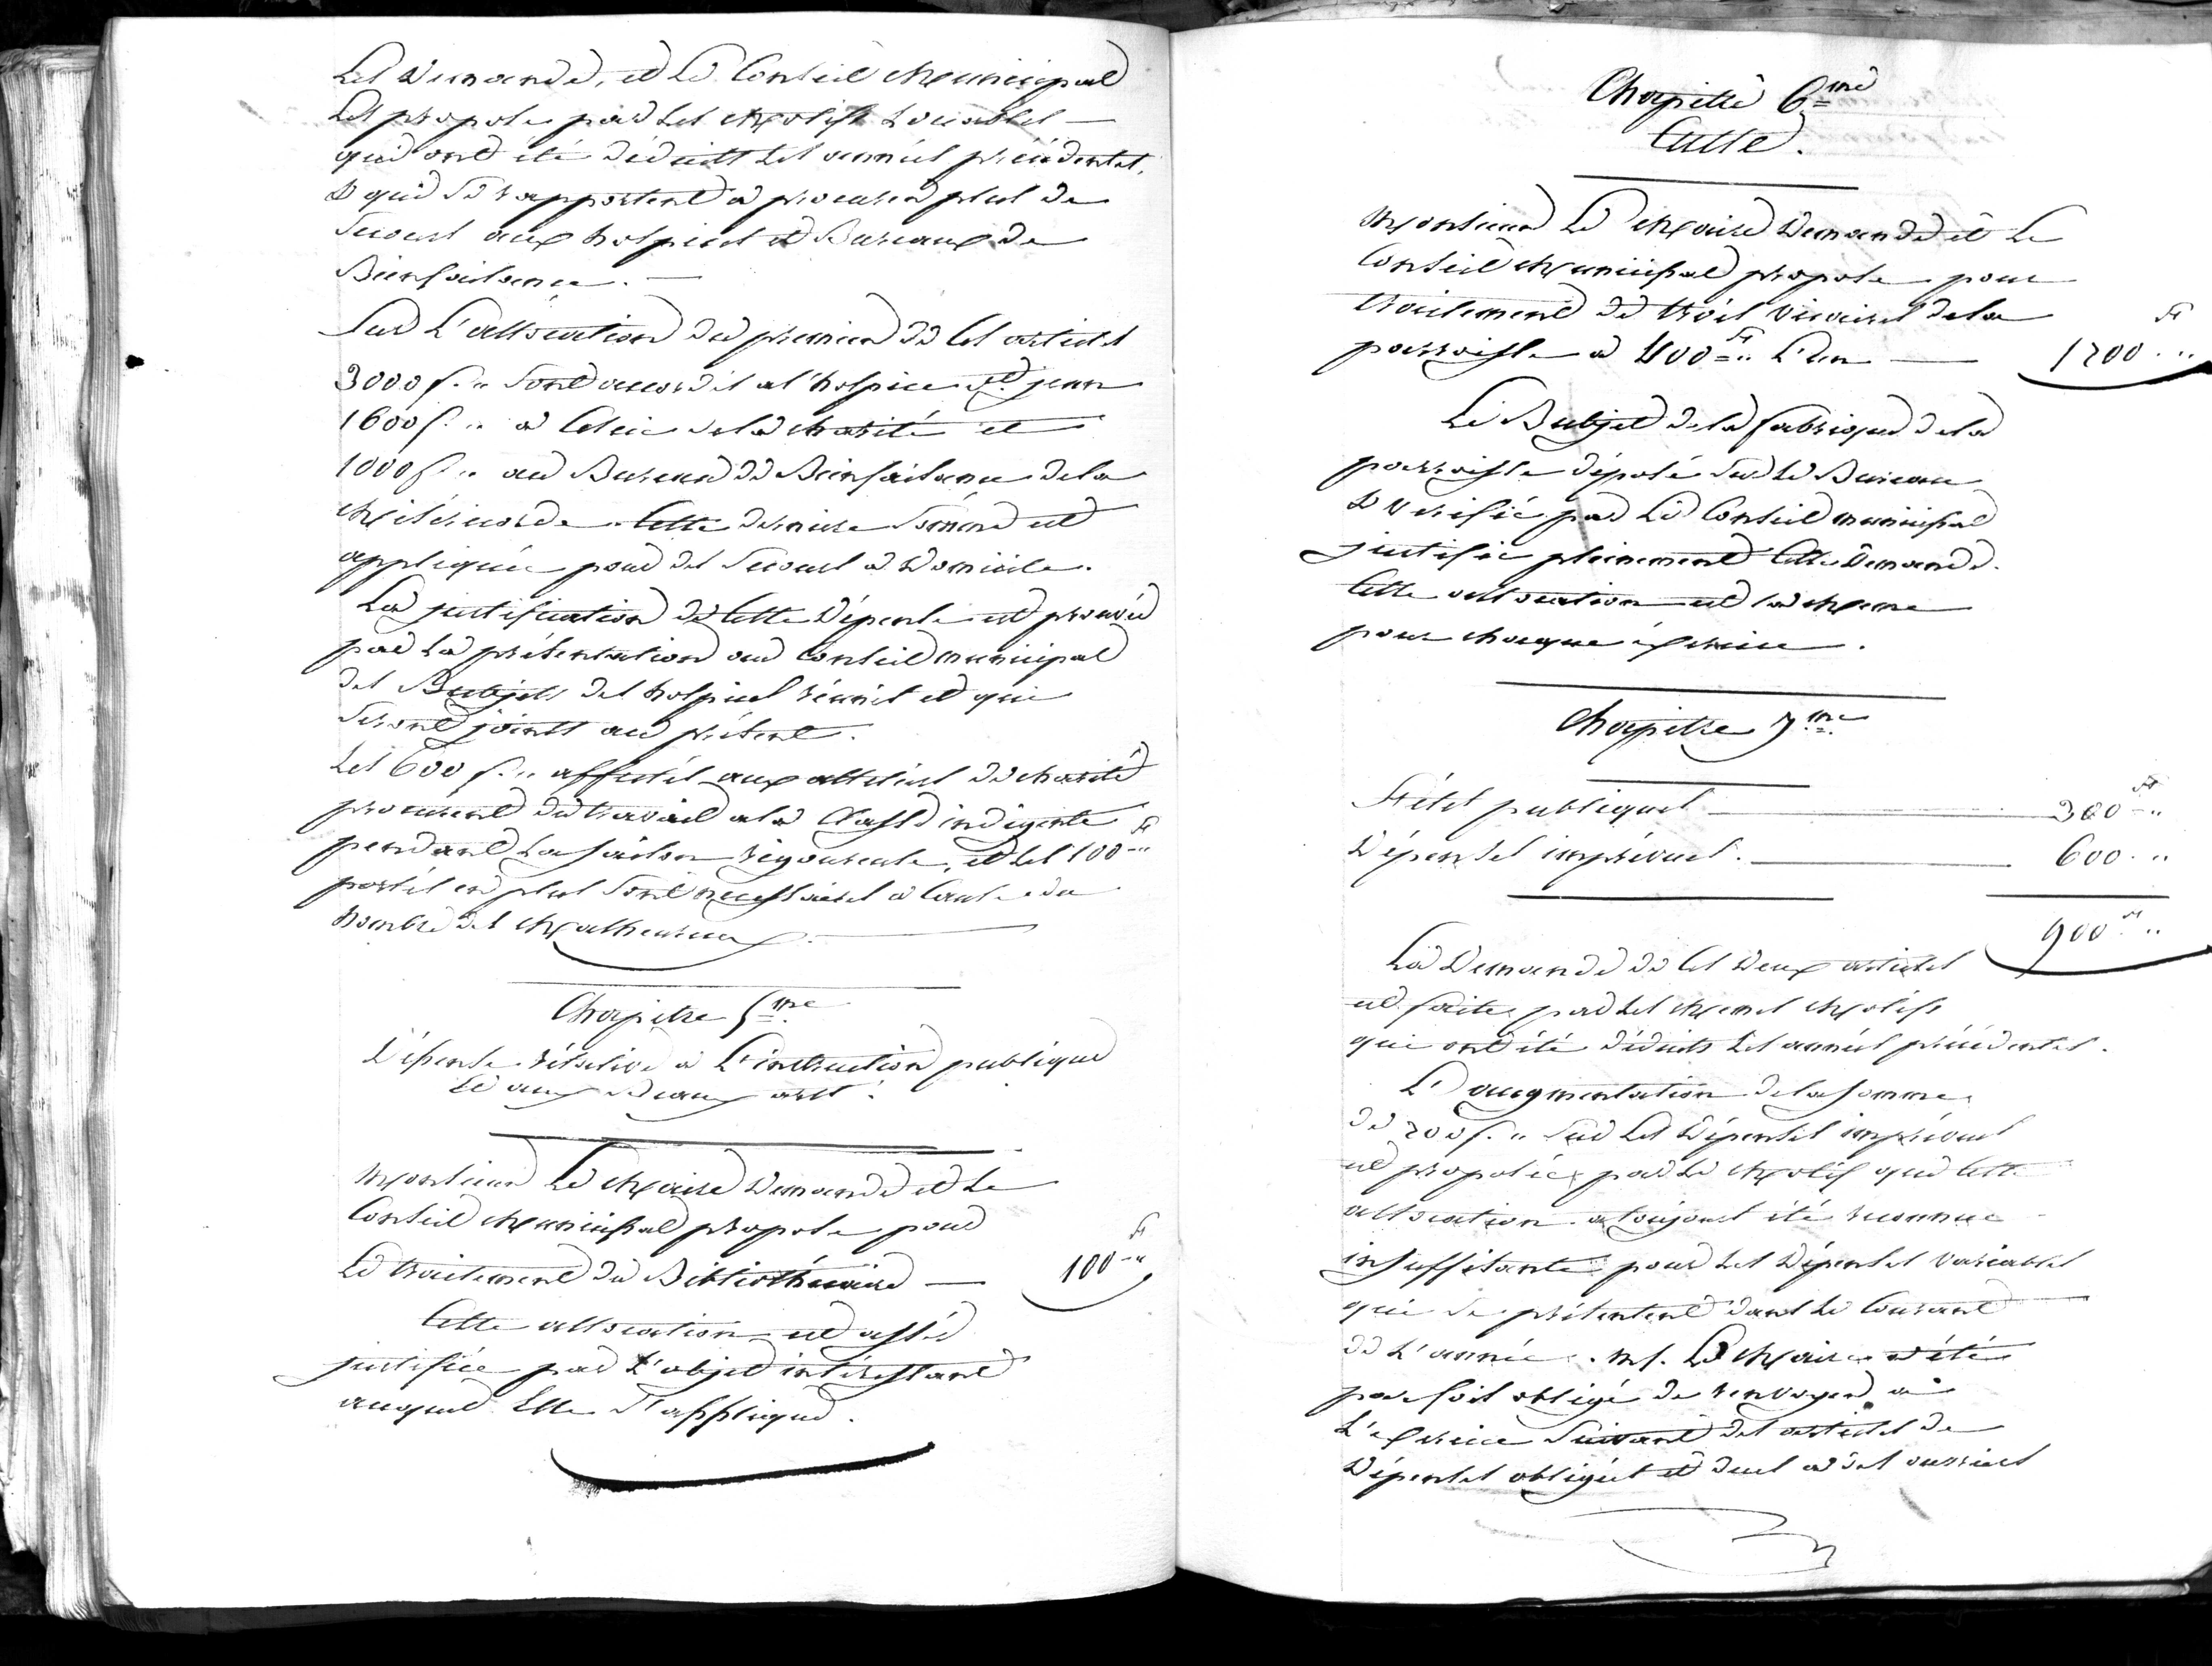 Les Demande, et Le Conseil Municipal
Les propose par Les Motifs Louables —
qui ont été déduits Les années précédentes,
& qui se rapportent a procurer plus de
Secours aux hospices et Bureaux de
Bienfaisance. —
Sur L'allocation du premier de Ces articles
3000 f. " Sont accordés a l'hospice St. jean
1600 f. " a Celui de la charité et
1000 f. " au Bureau de Bienfaisance de la
Miséricorde. Cette derniere Somme est
appliquée pour des Secours a Domicile.
La justification de Cette Dépense est prouvée
par La présentation au Conseil municipal
des Budjets des hospices réunis et qui
Seront joints au présent.
Les 600 f. " affectés aux atteliers de charité
procurent du travail a la Classe indigente
pendant La saison rigoureuse, et Les 100 Fr "
portés en plus Sont necessaires a Cause du
Nombre des Malheureux. —
Chapitre 5.me
Dépense rélative a L'instruction publique
Et aux Beaux arts.
Monsieur Le Maire Demande et Le
Conseil Municipal propose pour
Le traitement du Bibliothécaire — 100 Fr "
Cette allocation est assés
justifiée par L'objet intéressant
auquel Elle S'applique.
Chapitre 6.me
Culte.
Monsieur Le Maire Demande et Le
Conseil Municipal propose pour
traitement de trois Vicaires de la
parroisse a 400 Fr " L'un — 1200 Fr "
Le Budjet de la fabrique de la
parroisse déposé Sur Le Bureau
& Verifié par Le Conseil municipal
justifie pleinement Cette Demande.
Cette allocation est la Meme
pour chaque éxercice.
Chapitre 7.me
Fêtes publiques — 300 Fr "
Dépenses imprévues. — 600 . "
900 Fr "
La Demande de Ces Deux articles
est faite par Les Memes Motifs
qui ont été déduits Les années précédentes.
L'augmentation de la Somme
de 200 f. " Sur Les Dépenses imprévues
est proposée par Le Motif que Cette
allocation a toujours été reconnue
insuffisante pour Les Dépenses Variables
qui Se présentent dans Le Courant
de L'année. Mr. Le Maire a été
par fois obligé de renvoyer a
L'exercice Suivant des articles de
Dépenses obligées et dues a des ouvriers